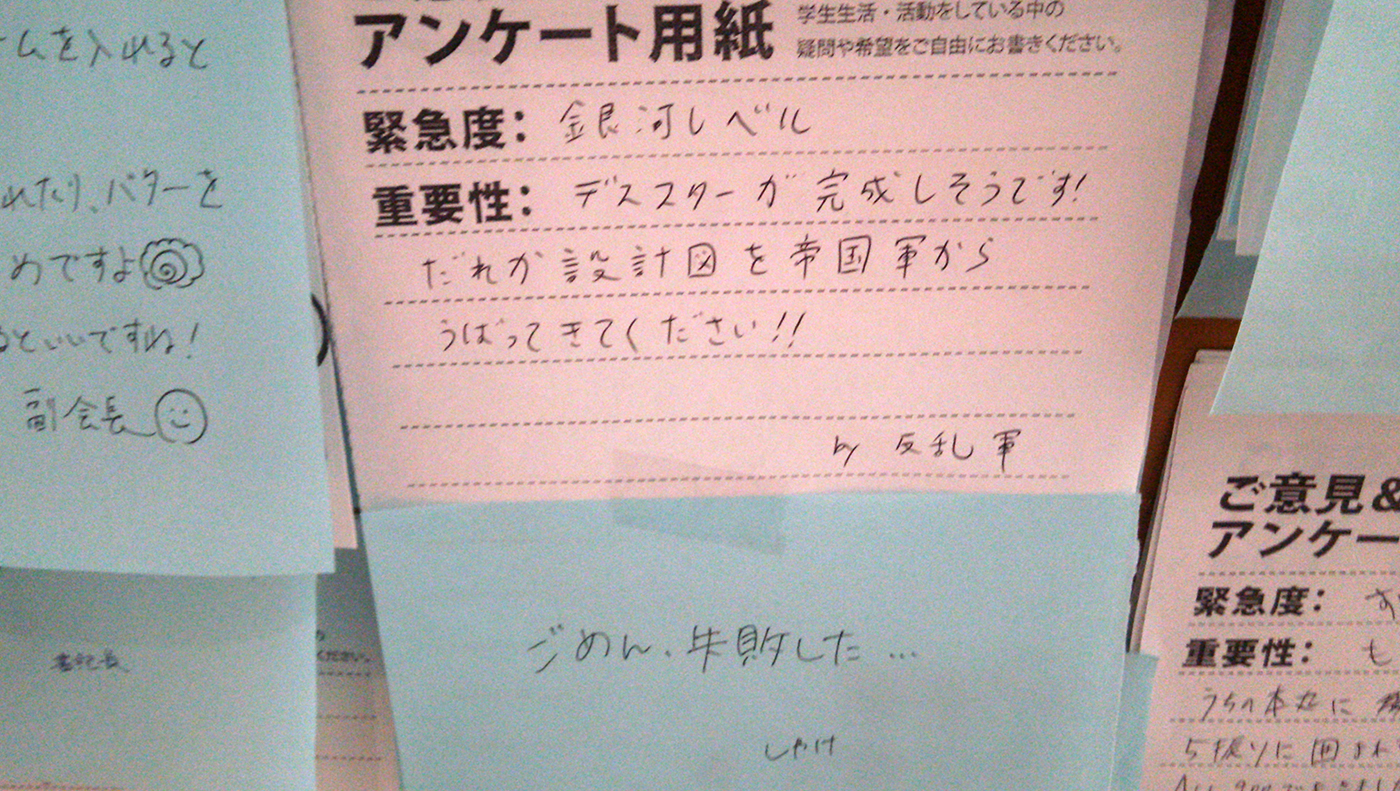 ムを入れると
れたり、バターを
めですよ
るといいですね!
副会長
書記長
アンケート用紙
学生生活・活動をしている中の
疑問や希望をご自由にお書きください。
緊急度: 銀河レベル
重要性: デススターが完成しそうです!
だれか設計図を帝国軍から
うばってきてください!!
by 反乱軍
ごめん、失敗した…
しゃけ
ください。
ご意見&
アンケー
緊急度: す
重要性: も
うちの本丸に
5振りに囲まれ